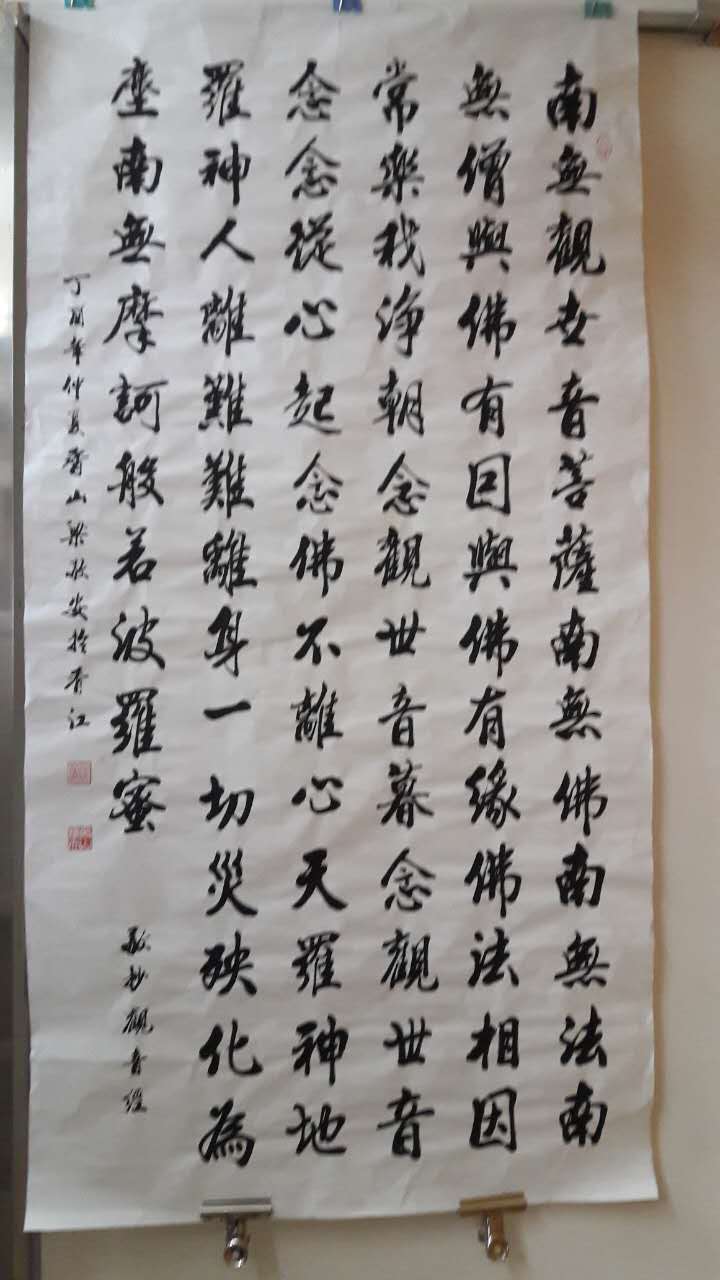 南無觀世音菩薩南無佛南無法南
無僧與佛有因與佛有緣佛法相因
常樂我淨朝念觀世音暮念觀世音
念念從心起念佛不離心天羅神地
羅神人離難難離身一切災殃化為
塵南無摩訶般若波羅蜜
敬抄觀音經
丁酉年仲夏香山梁於香江